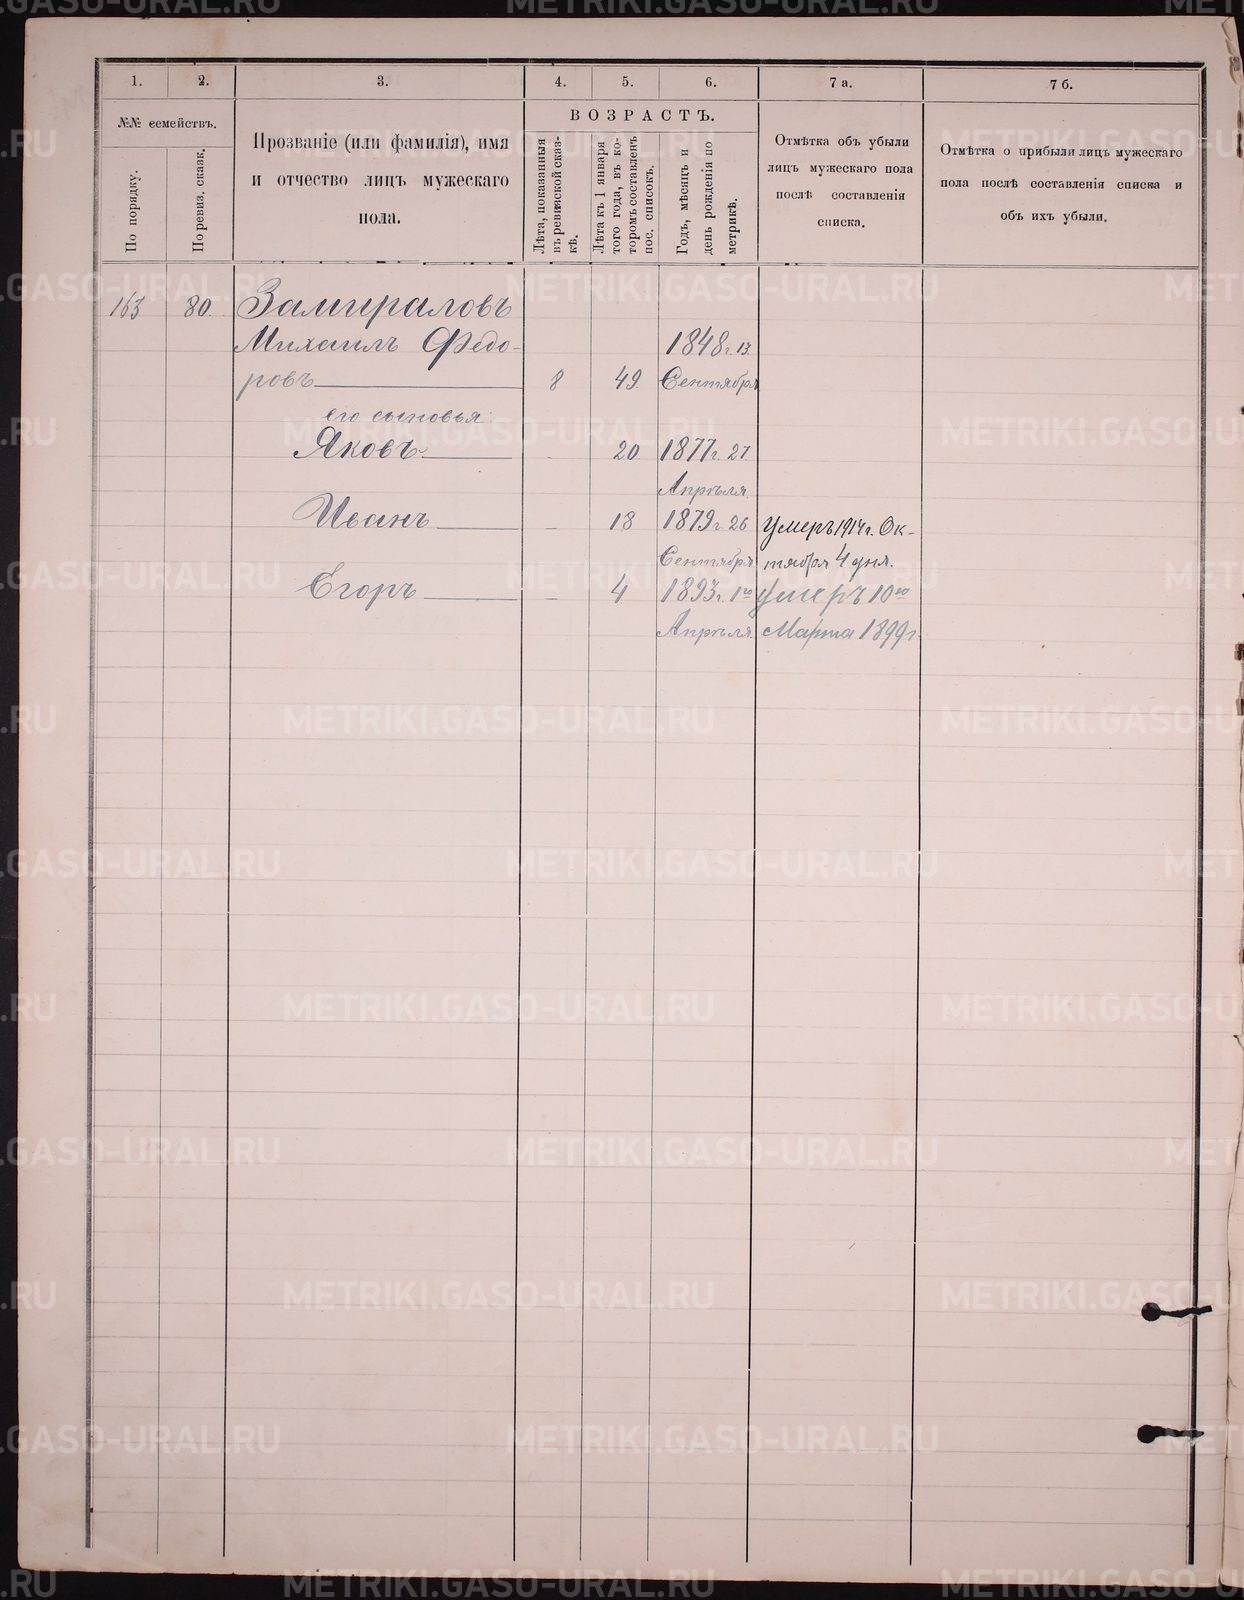 1. 2. 3. 4. 5. 6. 7 а. 7 б.
№№ семействъ.
По порядку.
По ревиз. сказк.
Прозваніе (или фамилія), имя
и отчество лицъ мужескаго
пола.
ВОЗРАСТЪ.
Лѣта, показанныя
въ ревизской сказ-
кѣ.
Лѣта къ 1 января
того года, въ ко-
торомъ составленъ
пос. списокъ.
Годъ, мѣсяцъ и
день рожденія по
метрикѣ.
Отмѣтка объ убыли
лицъ мужескаго пола
послѣ составленія
списка.
Отмѣтка о прибыли лицъ мужескаго
пола послѣ составленія списка и
объ ихъ убыли.
163 80. Замираловъ
Михаилъ Федо- 1848 г. 13
ровъ 8 49 Сентября
его сыновья:
Яковъ - 20 1877 г. 27
Апрѣля
Иванъ - 18 1879 г. 26 умеръ 1914 г. Ок-
Сентября тября 4 дня.
Егоръ - 4 1893 г. 1го умеръ 10го
Апрѣля Марта 1899 г.
METRIKI.GASO-URAL.RU